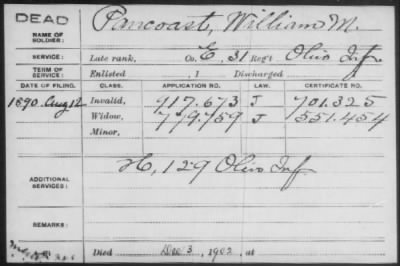 DEAD
NAME OF SOLDIER: Pancoast, William M.
SERVICE: Late rank, Co. E, 31 Reg't Ohio Inf
TERM OF SERVICE: Enlisted , 1 Discharged
DATE OF FILING. CLASS. APPLICATION NO. LAW. CERTIFICATE NO.
1890. Aug 12 Invalid, 917.673 J 701.325
Widow, 779.759 J 551.454
Minor,
ADDITIONAL SERVICES: H, 129 Ohio Inf
REMARKS:
Died Dec 3, 1902, at